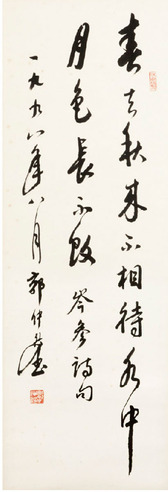 春去秋来不相待水中
月色长不改岑参诗句
一九九八年八月郭仲选